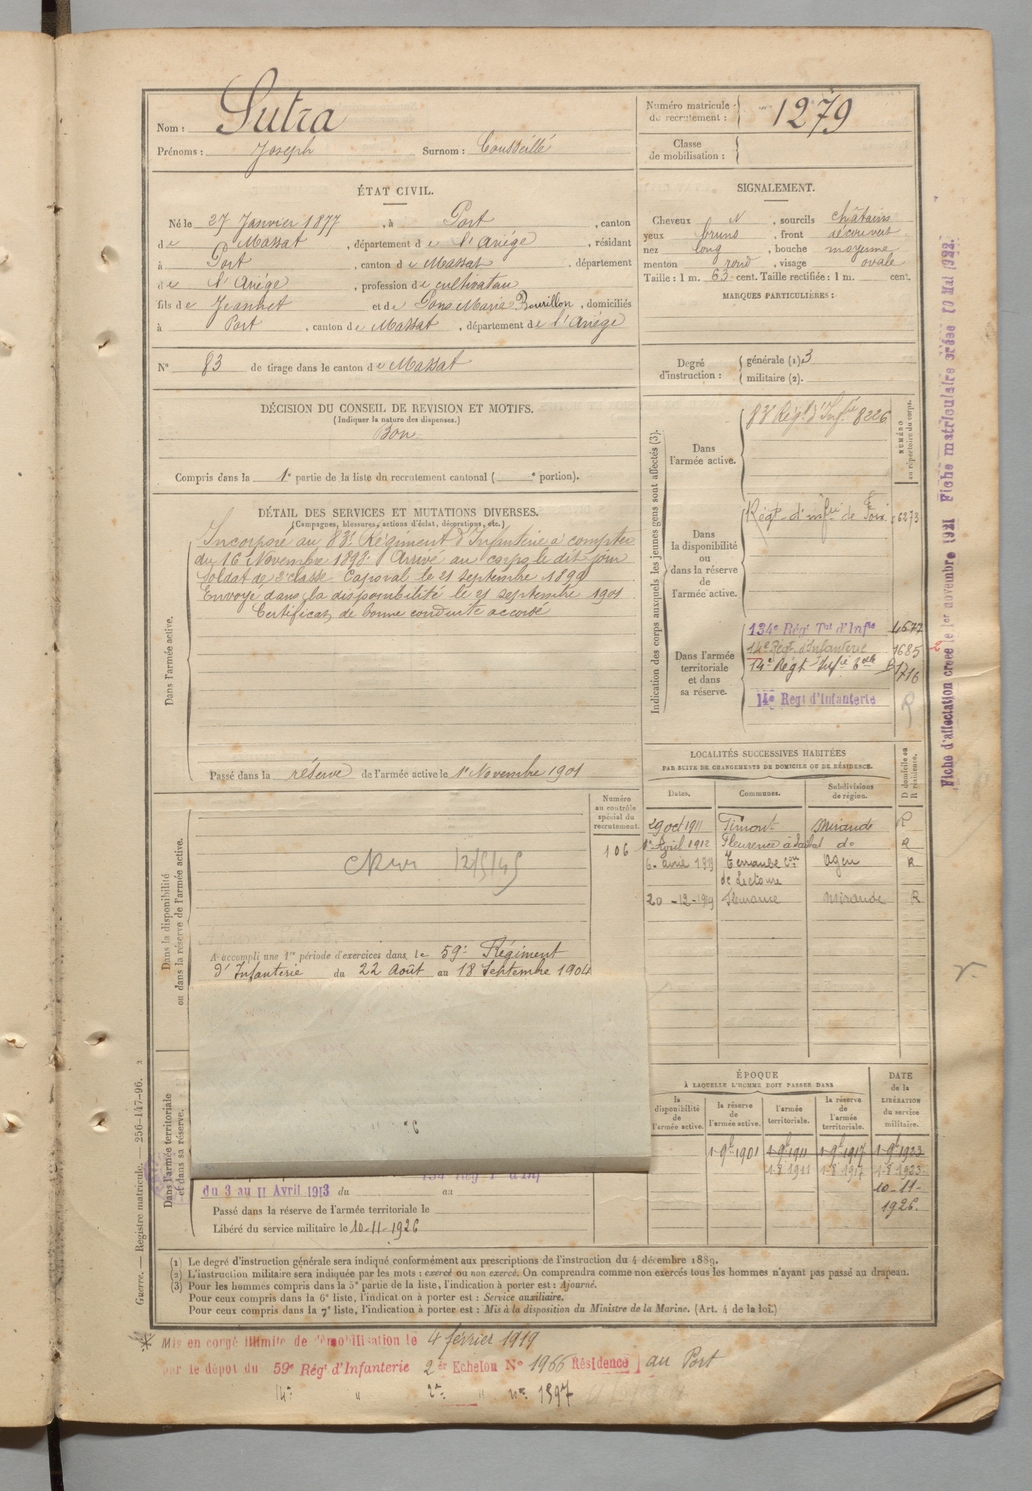 Nom : Sutra
Prénoms : Joseph Surnom : Cousseillé
Numéro matricule de recrutement : 1279
Classe de mobilisation :
ÉTAT CIVIL.
Né le 27 Janvier 1877, à Port, canton
de Massat, département de l'Ariège, résidant
à Port, canton de Massat, département
de l'Ariège, profession de cultivateur
fils de Jeannet et de Pons Marie Bourillon, domiciliés
à Port, canton de Massat, département de l'Ariège
N° 83 de tirage dans le canton de Massat
SIGNALEMENT.
Cheveux N, sourcils châtains
yeux bruns, front découvert
nez long, bouche moyenne
menton rond, visage ovale
Taille : 1 m. 63 cent. Taille rectifiée : 1 m. cent.
MARQUES PARTICULIÈRES :
Degré d'instruction : générale (1) 3
militaire (2).
DÉCISION DU CONSEIL DE REVISION ET MOTIFS.
(Indiquer la nature des dispenses.)
Bon
Compris dans la 1e partie de la liste du recrutement cantonal ( e portion).
DÉTAIL DES SERVICES ET MUTATIONS DIVERSES.
(Campagnes, blessures, actions d'éclat, décorations, etc.)
Dans l'armée active.
Incorporé au 83e Régiment d'Infanterie à compter
du 16 Novembre 1898. Arrivé au corps le dit jour
Soldat de 2e classe. Caporal le 21 septembre 1899
Envoyé dans la disponibilité le 21 septembre 1901
Certificat de bonne conduite accordé
Passé dans la réserve de l'armée active le 1er Novembre 1901
Indication des corps auxquels les jeunes gens sont affectés (3).
NUMÉRO au répertoire du corps.
Dans l'armée active.
83e Régt d'Infie 8226
Dans la disponibilité ou dans la réserve de l'armée active.
Régt d'infie de Foix 6273
Dans l'armée territoriale et dans sa réserve.
134e Régt Tal d'Infie 4677
14e Régt d'Infanterie 1685
14e Régt Infie 1716
14e Regt d'Infanterie R
LOCALITÉS SUCCESSIVES HABITÉES
PAR SUITE DE CHANGEMENTS DE DOMICILE OU DE RÉSIDENCE.
Dates. Communes. Subdivisions de région. D domicile ou R résidence.
29 oct 1911 Mirande R
1er Avril 1912 Fleurance do R
6 avril Agen R
de Lectoure
20-12-1919 Fleurance Mirande R
Dans la disponibilité ou dans la réserve de l'armée active.
Numéro au contrôle spécial du recrutement.
106
12/5/45
A accompli une 1re période d'exercices dans le 59e Régiment
d'Infanterie du 22 Août au 18 Septembre 1904
Dans l'armée territoriale et dans sa réserve.
du 3 au 11 Avril 1913 du au
Passé dans la réserve de l'armée territoriale le
Libéré du service militaire le 10-11-1926
ÉPOQUE
À LAQUELLE L'HOMME DOIT PASSER DANS
la disponibilité de l'armée active. la réserve de l'armée active. l'armée territoriale. la réserve de l'armée territoriale.
DATE de la LIBÉRATION du service militaire.
1-9bre 1901 1-9bre 1911 1-9bre 1917 1-9bre 1923
1-8 1911 1-8 1917 1-8 1923
10-11-
1926.
(1) Le degré d'instruction générale sera indiqué conformément aux prescriptions de l'instruction du 4 décembre 1889.
(2) L'instruction militaire sera indiquée par les mots : exercé ou non exercé. On comprendra comme non exercés tous les hommes n'ayant pas passé au drapeau.
(3) Pour les hommes compris dans la 5e partie de la liste, l'indication à porter est : Ajourné.
Pour ceux compris dans la 6e liste, l'indication à porter est : Service auxiliaire.
Pour ceux compris dans la 7e liste, l'indication à porter est : Mis à la disposition du Ministre de la Marine. (Art. 4 de la loi.)
Mis en congé illimité de démobilisation le 4 février 1919
par le dépot du 59e Régt d'Infanterie 2e Echelon N° 1966 Résidence au Port
14e " 2e " n° 1397
Guerre. — Registre matricule. — 256-147-96.
Fiche d'affectation créée le 1er novembre 1921 Fiche matriculaire créée 10 Mai 1923.